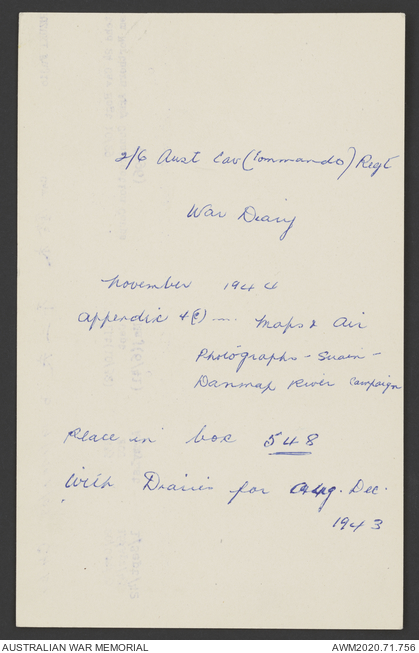 2/6 Aust Cav (Commando) Regt
War Diary
November 1944
Appendix 4(C) — Maps & Air
Photographs - Suain -
Danmap River Campaign
Place in box 548
With Diaries for Aug. Dec.
1943
AUSTRALIAN WAR MEMORIAL
AWM2020.71.756